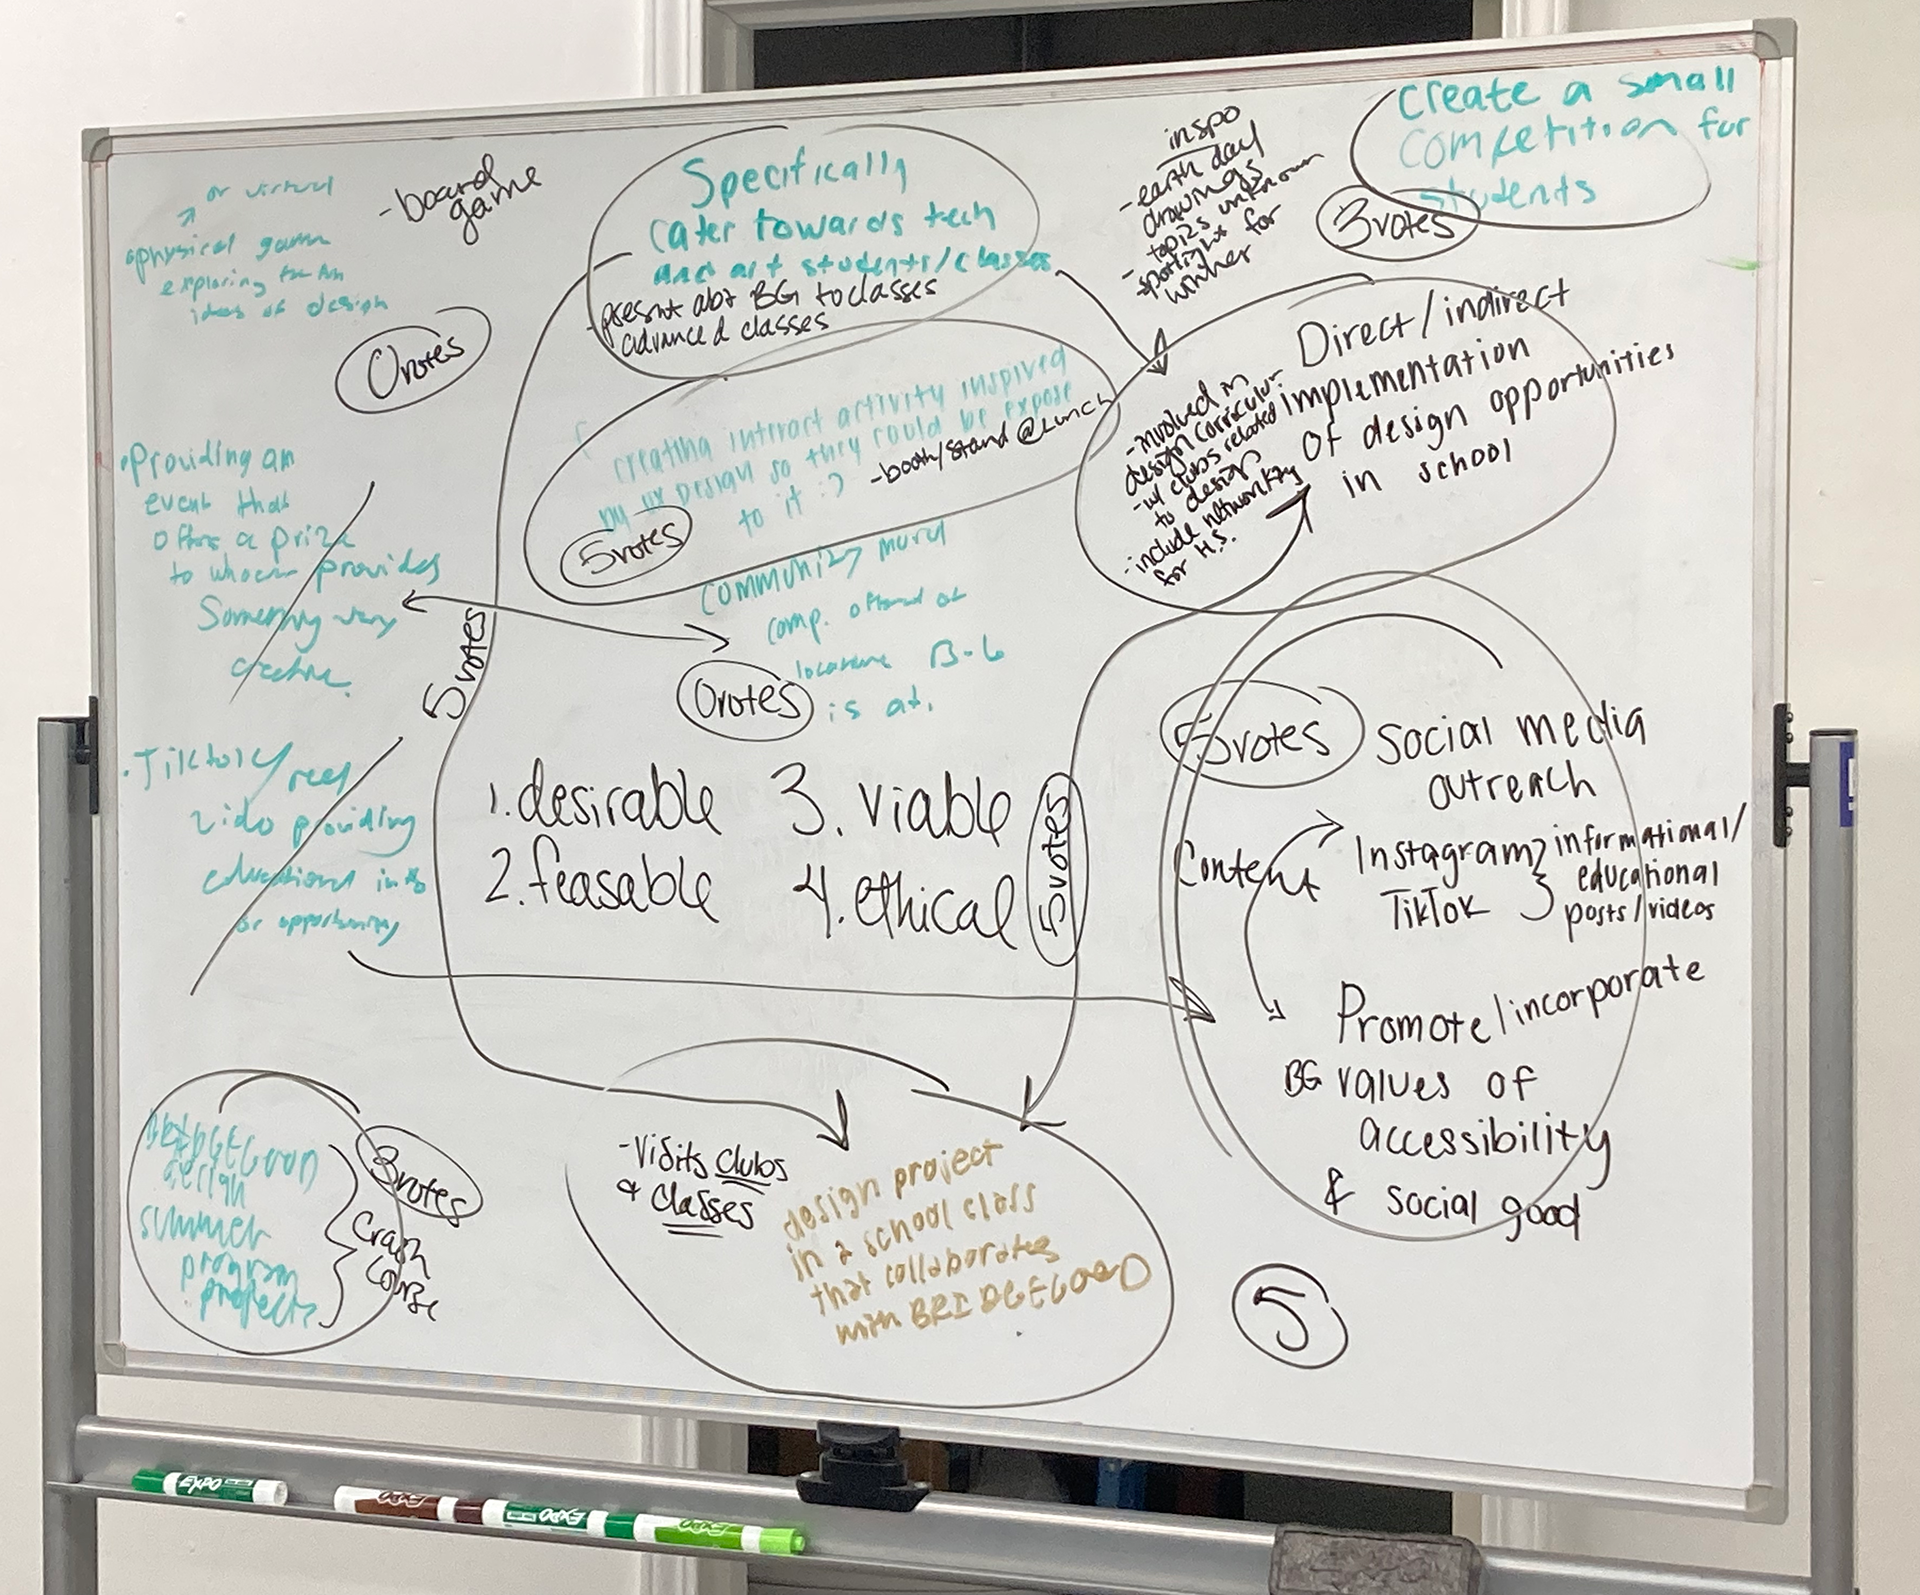 or virtual
physical game
exploring the
ideas of design
-board
game
0 votes
Specifically
cater towards tech
and art students/classes
-present abt BG to classes
advanced classes
inspo
-earth day
drawings
-topics unknown
-spotlight for
winner
Create a small
competition for
students
3 votes
creating interact activity inspired
by UX Design so they could be expose
to it :)
-booth/stand @Lunch
5 votes
Direct/indirect
implementation
of design opportunities
in school
-involved in
design curriculum
-w/ clubs related
to design
-include networking
for H.S.
•Providing an
event that
offers a prize
to whoever provides
Something very
creative.
community mural
comp. offered at
locations B-G
is at.
0 votes
5 votes
•Tiktok/
reel
video providing
educational info
or opportunity
1. desirable
2. feasable
3. viable
4. ethical
5 votes
5 votes
Social media
outreach
Content
Instagram
TikTok
informational/
educational
posts/videos
Promote/incorporate
BG values of
accessibility
& social good
BRIDGEGOOD
design
summer
program
projects
Crash
Course
3 votes
-Visits clubs
& classes
design project
in a school class
that collaborates
with BRIDGEGOOD
5
EXPO
EXPO
EXPO
EXPO